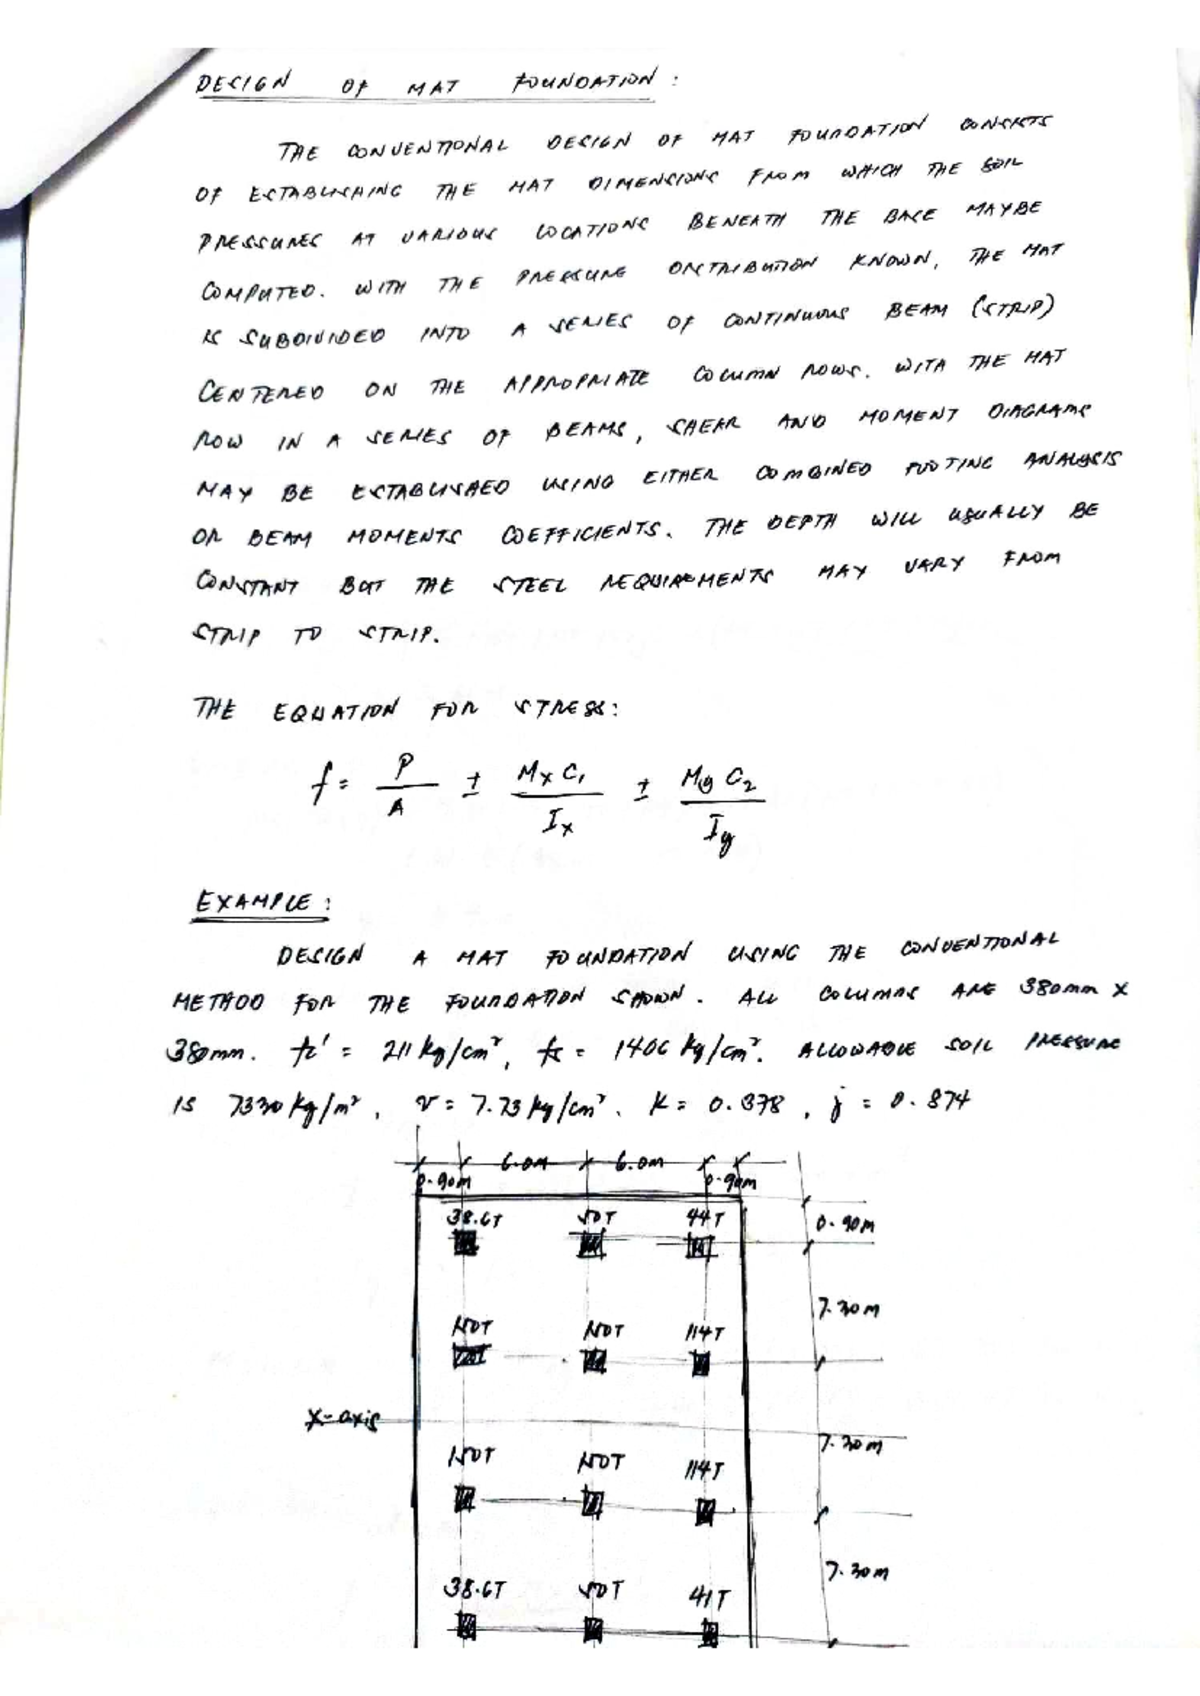 DESIGN OF MAT FOUNDATION :
THE CONVENTIONAL DESIGN OF MAT FOUNDATION CONSISTS
OF ESTABLISHING THE MAT DIMENSIONS FROM WHICH THE SOIL
PRESSURES AT VARIOUS LOCATIONS BENEATH THE BASE MAYBE
COMPUTED. WITH THE PRESSURE DISTRIBUTION KNOWN, THE MAT
IS SUBDIVIDED INTO A SERIES OF CONTINUOUS BEAM (STRIP)
CENTERED ON THE APPROPRIATE COLUMN ROWS. WITH THE MAT
ROW IN A SERIES OF BEAMS, SHEAR AND MOMENT DIAGRAMS
MAY BE ESTABLISHED USING EITHER COMBINED FOOTING ANALYSIS
OR BEAM MOMENTS COEFFICIENTS. THE DEPTH WILL USUALLY BE
CONSTANT BUT THE STEEL REQUIREMENTS MAY VARY FROM
STRIP TO STRIP.
THE EQUATION FOR STRESS:
f = P/A ± MxC₁/Ix ± MyC₂/Iy
EXAMPLE :
DESIGN A MAT FOUNDATION USING THE CONVENTIONAL
METHOD FOR THE FOUNDATION SHOWN. ALL COLUMNS ARE 380mm x
380mm. fc' = 211 kg/cm², fs = 1406 kg/cm². ALLOWABLE SOIL PRESSURE
IS 7330 kg/m², v = 7.73 kg/cm². K = 0.378, j = 0.874
6.0M 6.0m
0.90m 0.90m
38.6T 50T 44T 0.90m
7.30m
114T
x-axis
7.30m
114T
7.30m
38.6T 50T 41T